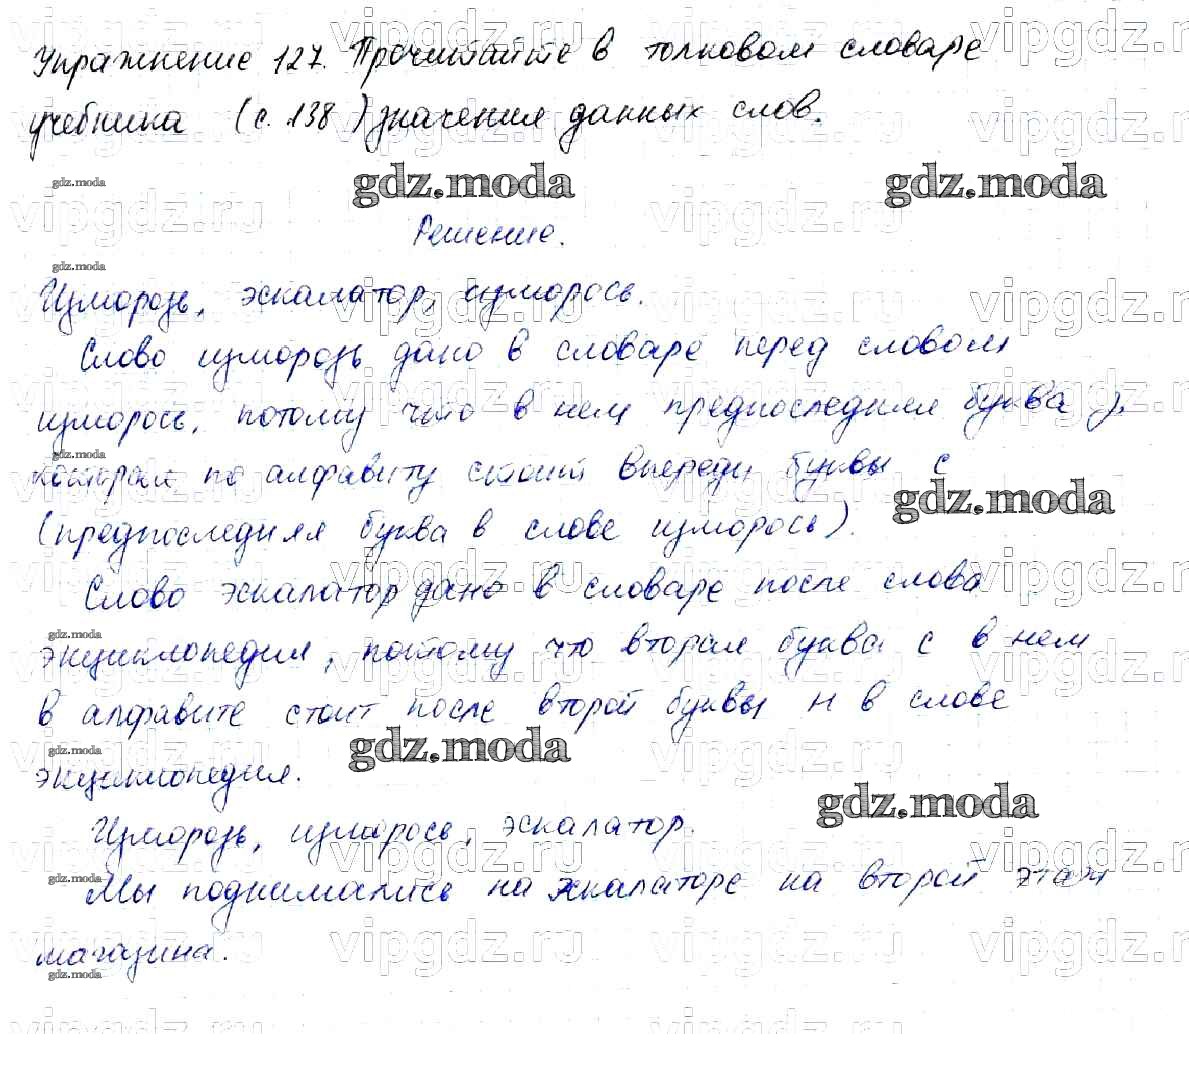 Упражнение 127. Прочитайте в толковом словаре
учебника (с. 138) значения данных слов.
gdz.moda gdz.moda gdz.moda
Решение.
gdz.moda
Изморозь, эскалатор, изморось.
Слово изморозь дано в словаре перед словом
изморось, потому что в нем предпоследняя буква з,
gdz.moda
которая по алфавиту стоит впереди буквы с
gdz.moda
(предпоследняя буква в слове изморось).
Слово эскалатор дано в словаре после слова
gdz.moda
энциклопедия, потому что вторая буква с в нем
в алфавите стоит после второй буквы н в слове
gdz.moda gdz.moda
энциклопедия.
gdz.moda
Изморозь, изморось, эскалатор.
gdz.moda
Мы поднимались на эскалаторе на второй этаж
магазина.
gdz.moda
vipgdz.ru